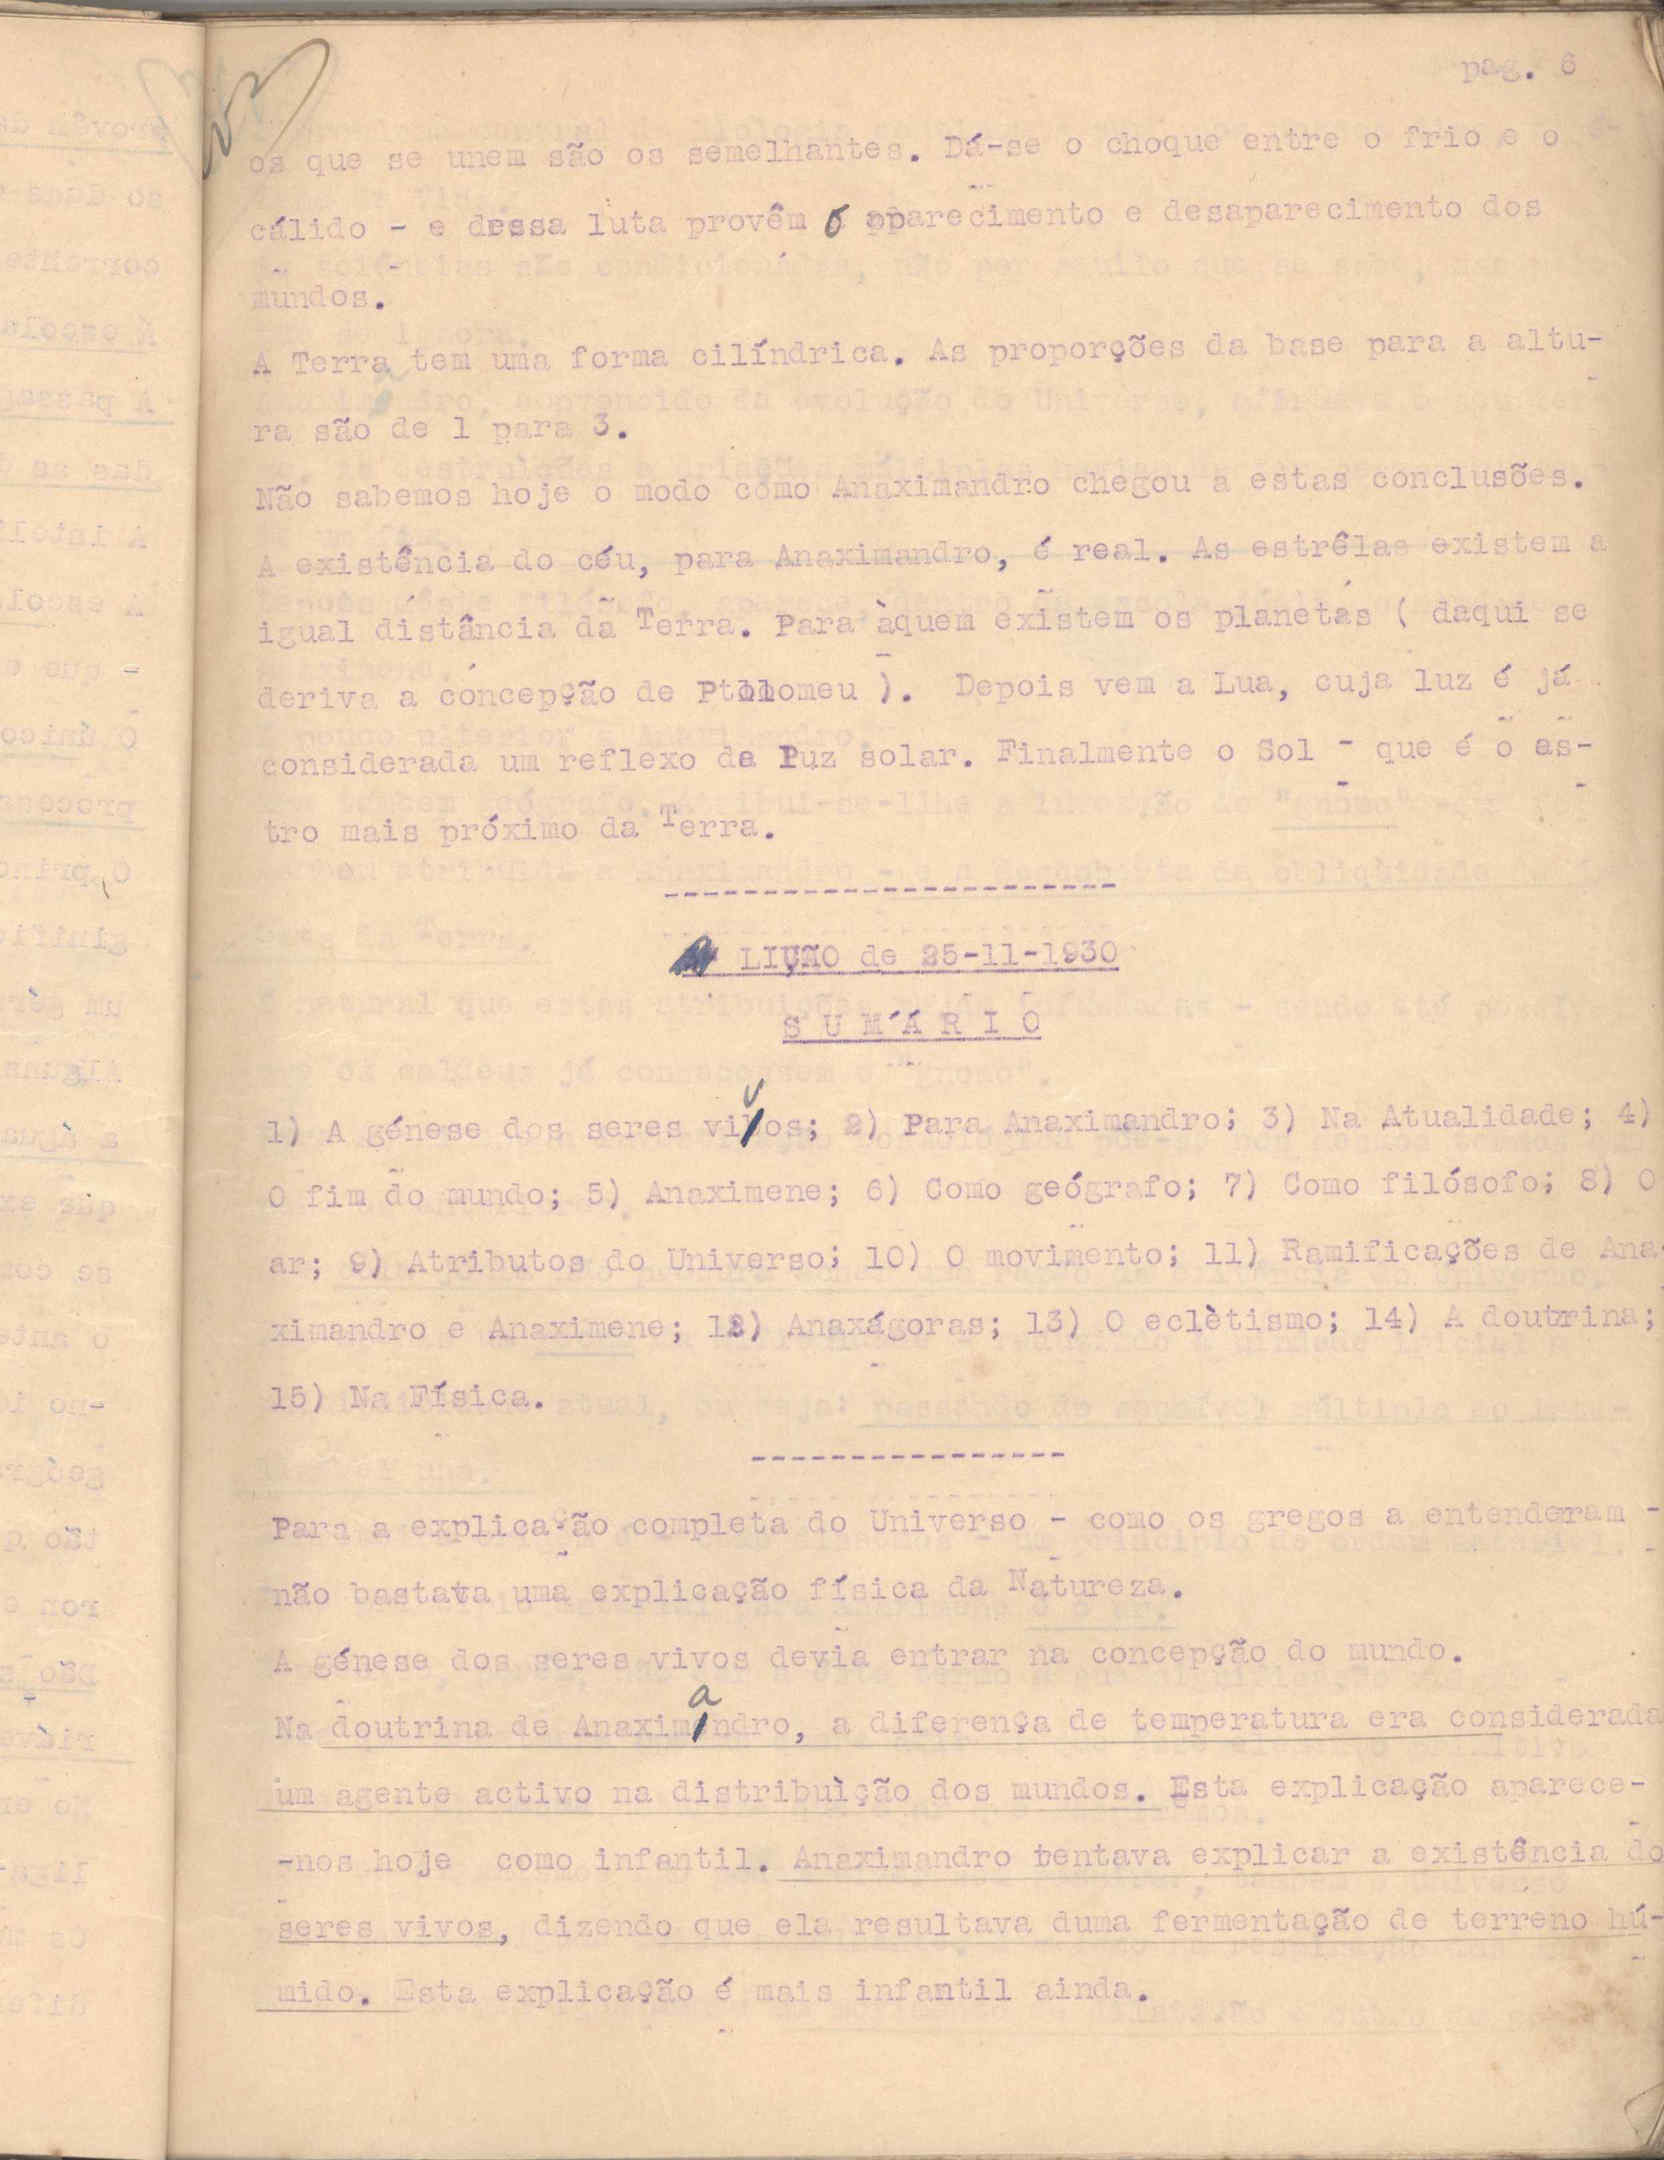 pag. 6
os que se unem são os semelhantes. Dá-se o choque entre o frio e o
cálido - e dessa luta provêm o aparecimento e desaparecimento dos
mundos.
A Terra tem uma forma cilíndrica. As proporções da base para a altu-
ra são de 1 para 3.
Não sabemos hoje o modo como Anaximandro chegou a estas conclusões.
A existência do céu, para Anaximandro, é real. As estrêlas existem a
igual distância da Terra. Para àquem existem os planetas ( daqui se
deriva a concepção de Ptolomeu ). Depois vem a Lua, cuja luz é já
considerada um reflexo da luz solar. Finalmente o Sol - que é o as-
tro mais próximo da Terra.
LIÇÃO de 25-11-1930
SUMÁRIO
1) A génese dos seres vivos; 2) Para Anaximandro; 3) Na Atualidade; 4)
O fim do mundo; 5) Anaximene; 6) Como geógrafo; 7) Como filósofo; 8) O
ar; 9) Atributos do Universo; 10) O movimento; 11) Ramificações de Ana-
ximandro e Anaximene; 12) Anaxágoras; 13) O eclètismo; 14) A doutrina;
15) Na Física.
Para a explicação completa do Universo - como os gregos a entenderam -
não bastava uma explicação física da Natureza.
A génese dos seres vivos devia entrar na concepção do mundo.
Na doutrina de Anaximandro, a diferença de temperatura era considerada
um agente activo na distribuìção dos mundos. Esta explicação aparece-
-nos hoje como infantil. Anaximandro tentava explicar a existência do
seres vivos, dizendo que ela resultava duma fermentação de terreno hú-
mido. Esta explicação é mais infantil ainda.